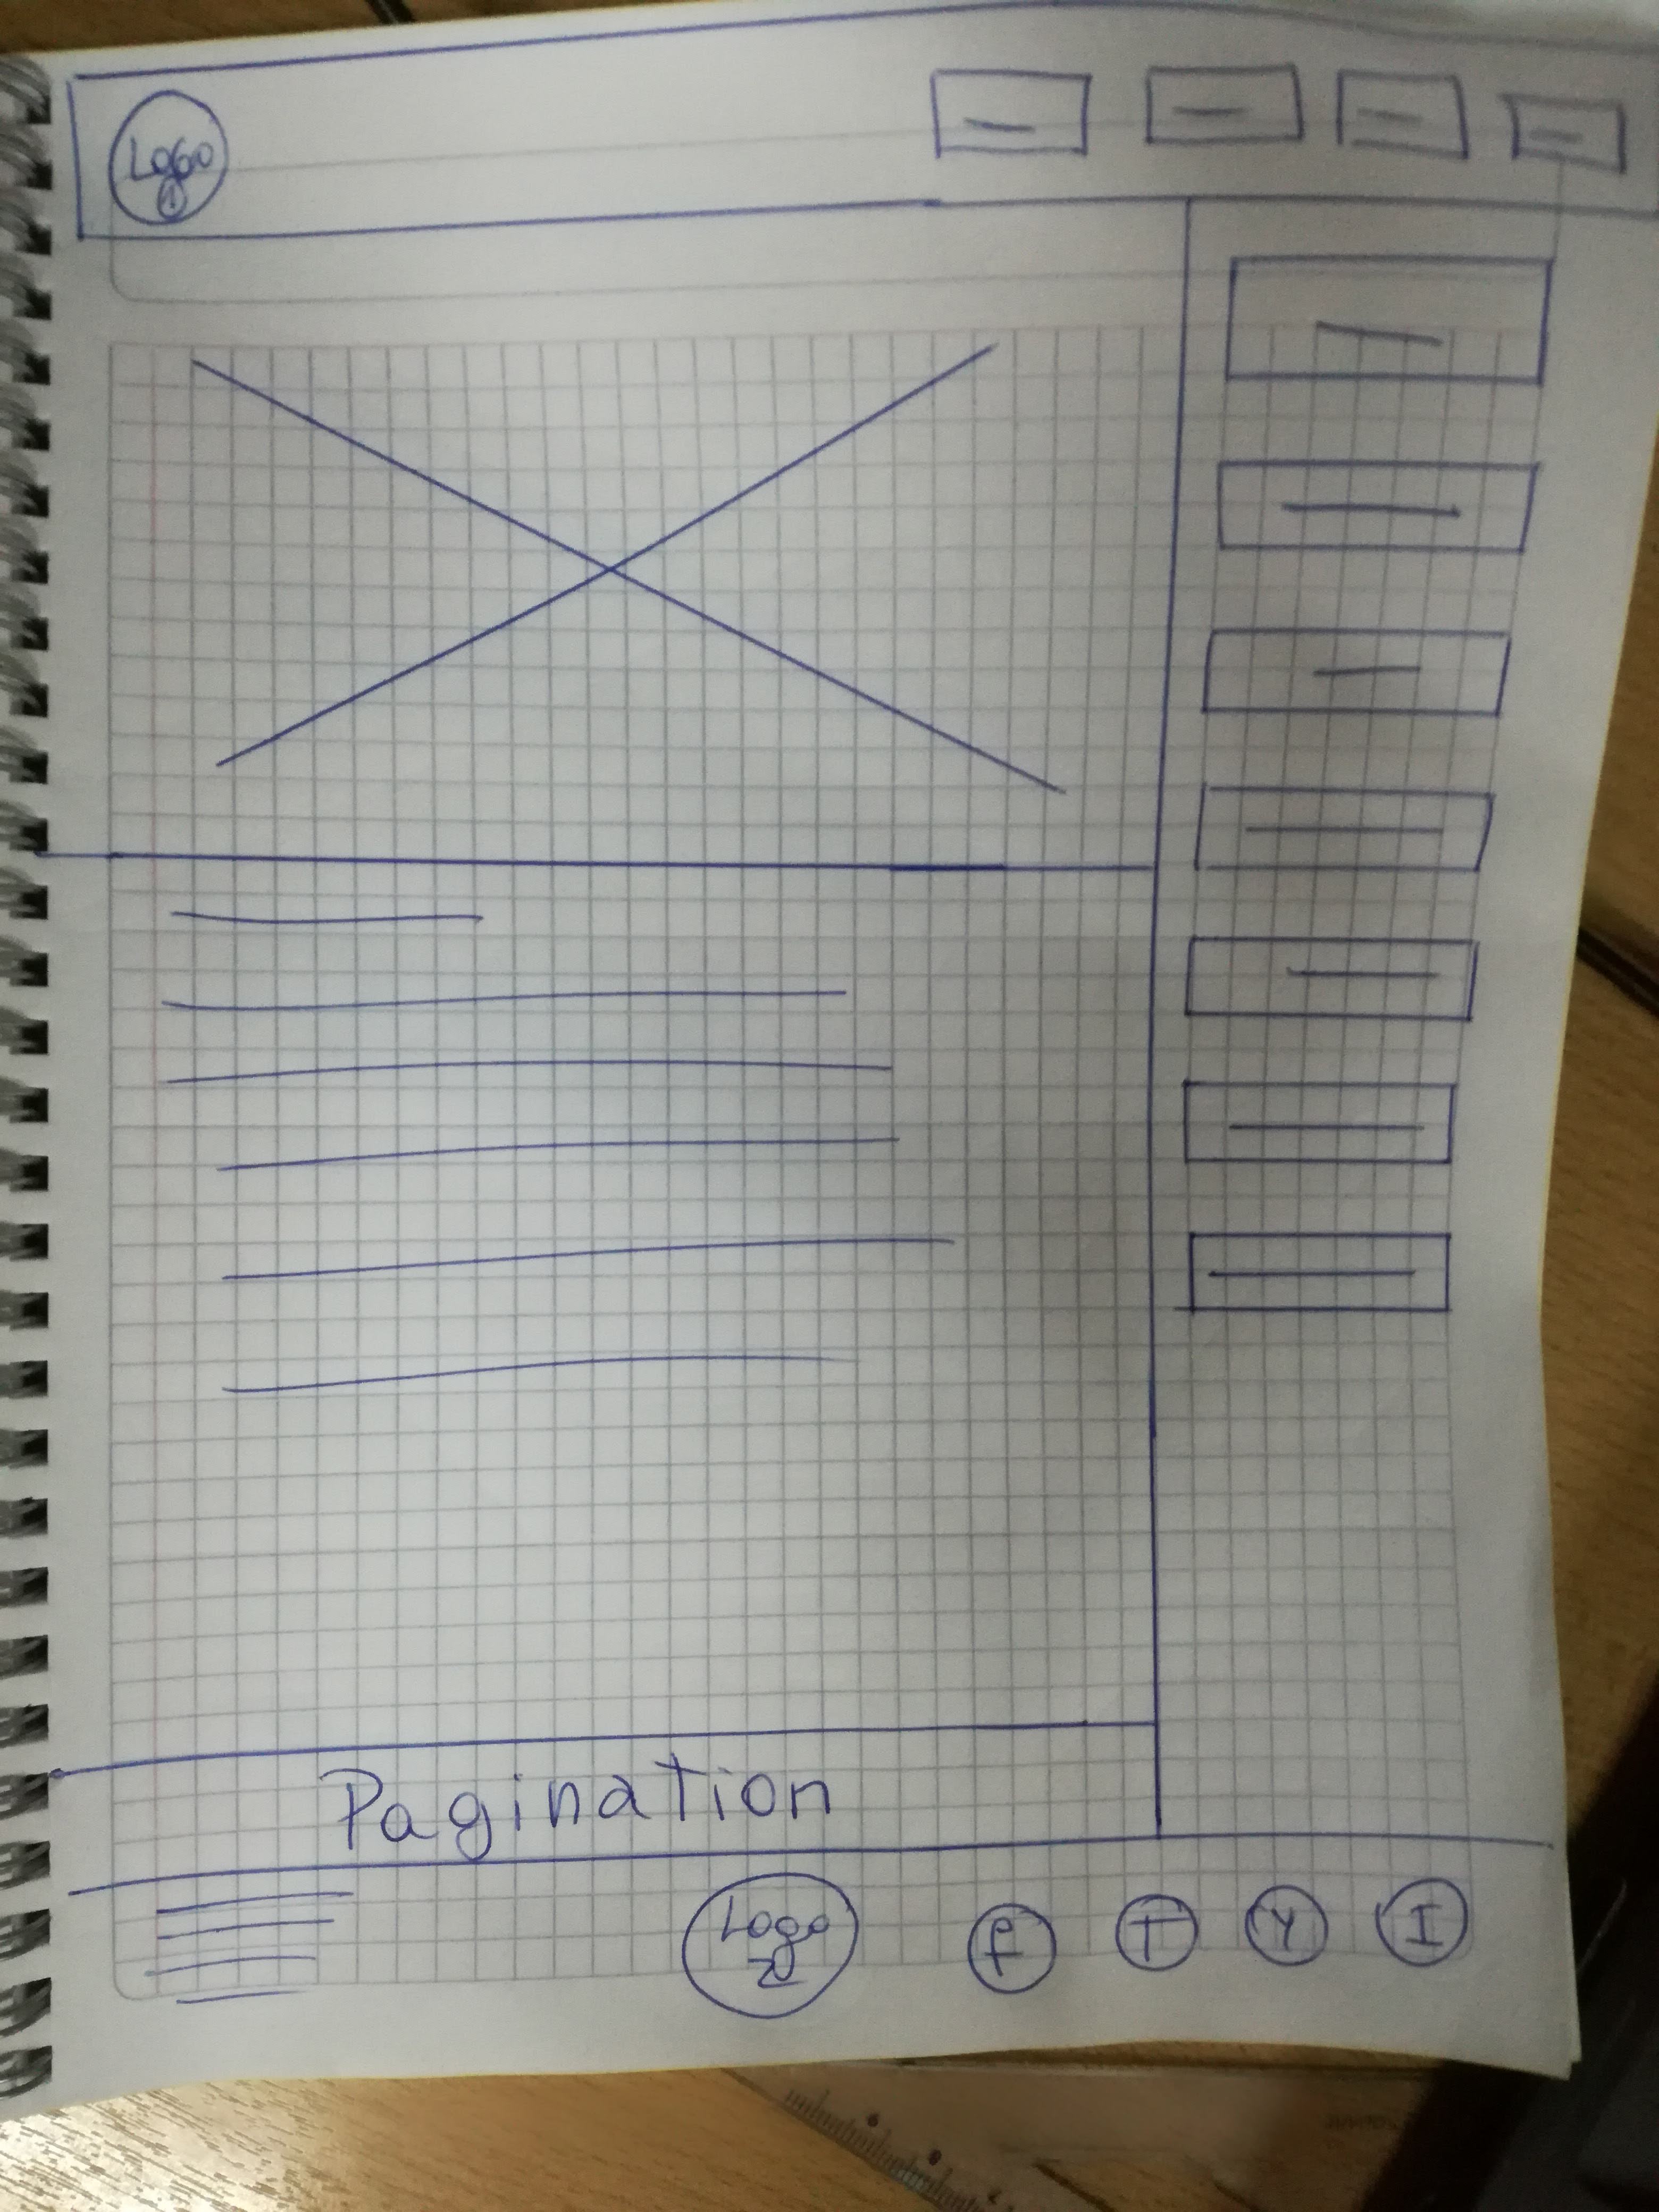 Logo
1
Pagination
Logo
2
f T Y I